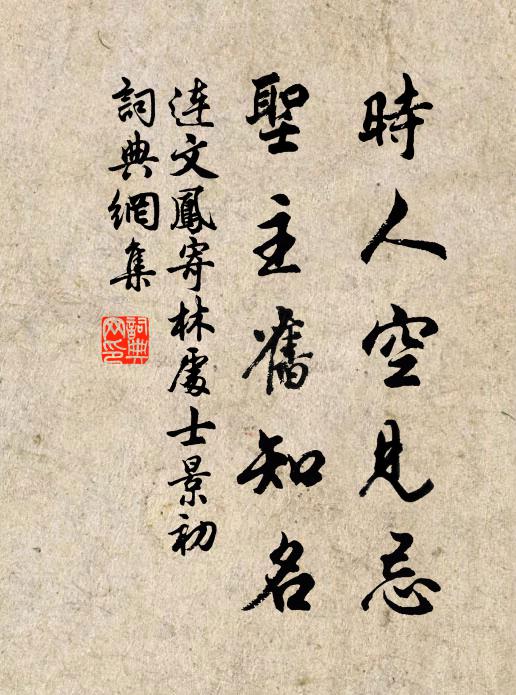 時人空見忌
聖主舊知名
連文鳳寄林處士景初
詞典網集
詞典網印